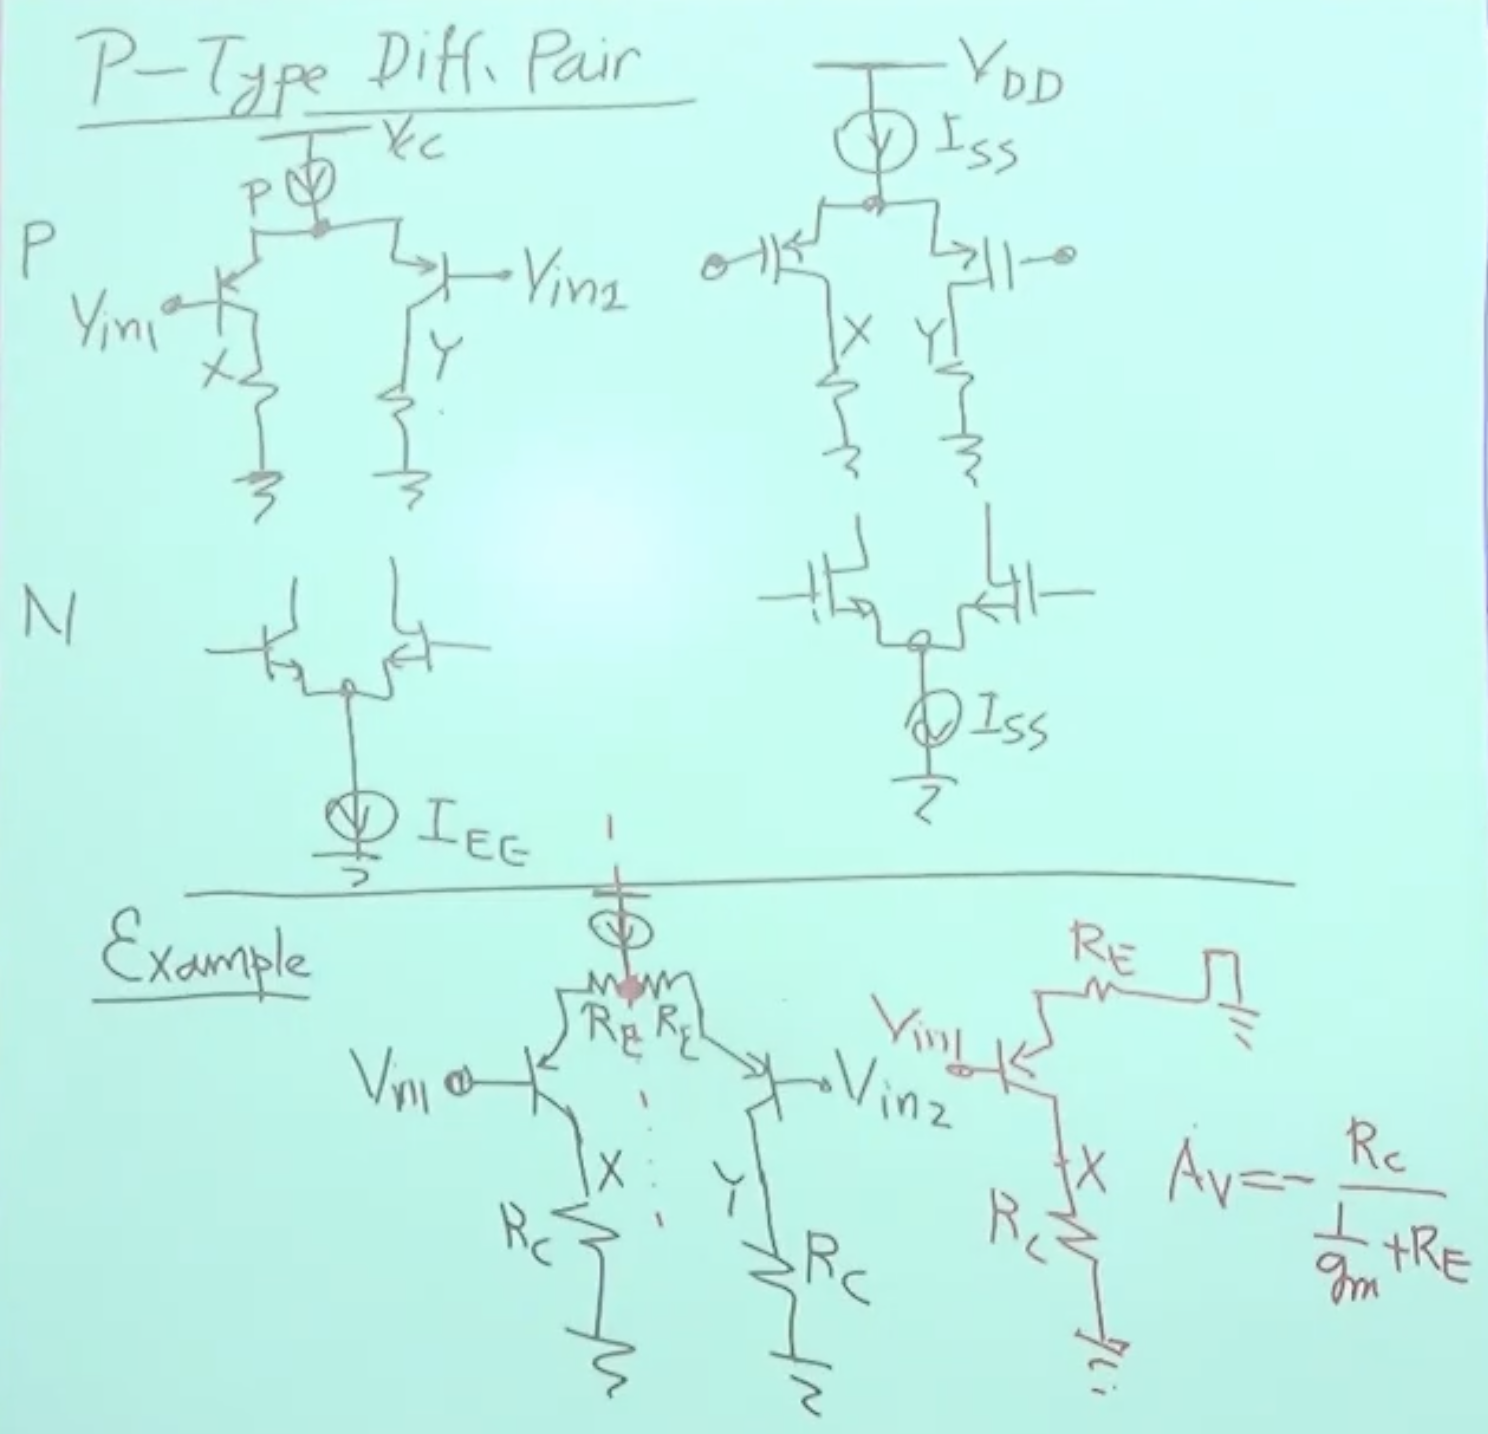 P-Type Diff. Pair
VCC
P
P
Vin1
Vin2
X
Y
VDD
ISS
X
Y
N
IEE
ISS
Example
RE
RE
Vin1
Vin2
X
Y
RC
RC
RE
Vin1
X
RC
Av = - RC / (1/gm + RE)